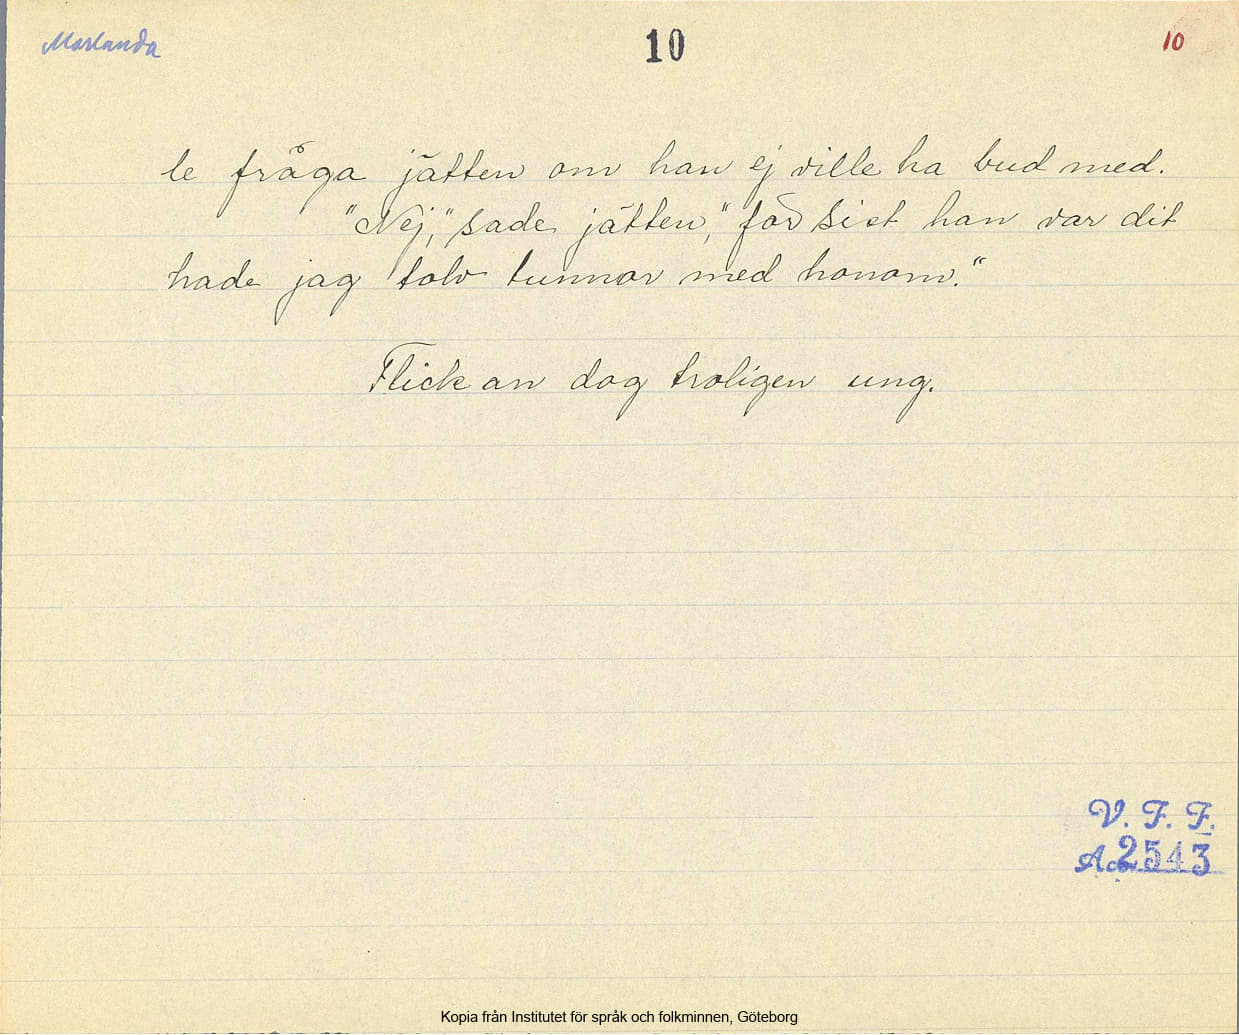 Morlanda
10
10
le fråga jätten om han ej ville ha bud med.
"Nej," sade jätten, "för sist han var dit
hade jag tolv tunnor med honom."
Flickan dog troligen ung.
V. F. F.
Acc 2543
Kopia från Institutet för språk och folkminnen, Göteborg